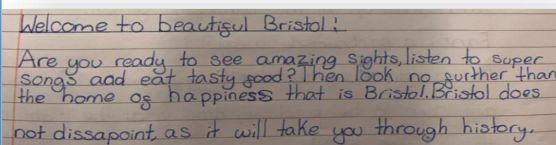 Welcome to beautiful Bristol!
Are you ready to see amazing sights, listen to super
songs and eat tasty food? Then look no further than
the home of happiness that is Bristol. Bristol does
not dissapoint, as it will take you through history.